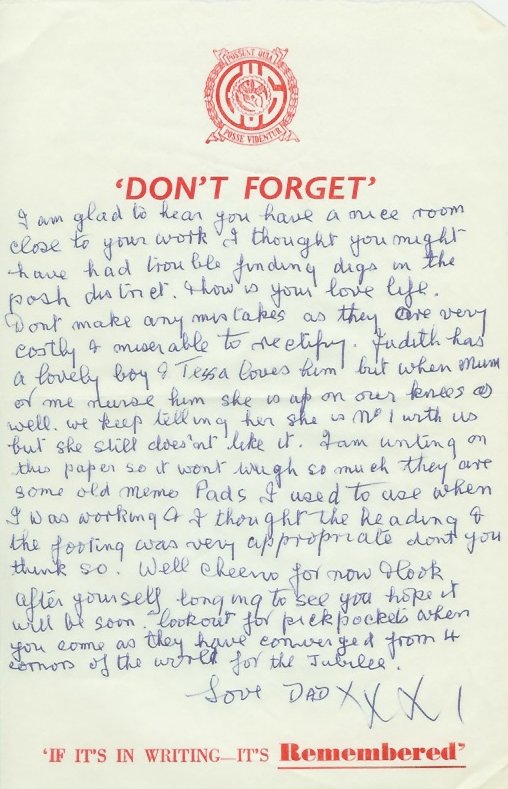 POSSUNT QUIA
POSSE VIDENTUR
'DON'T FORGET'
I am glad to hear you have a nice room
close to your work I thought you might
have had trouble finding digs in the
posh district. & how is your love life.
Dont make any mistakes as they are very
costly & miserable to rectify. Judith has
a lovely boy & Tessa loves him but when Mum
or me nurse him she is up on our knees as
well. we keep telling her she is No 1 with us
but she still does'nt like it. I am writing on
this paper so it wont weigh so much they are
some old memo Pads I used to use when
I was working & I thought the heading &
the footing was very appropriate dont you
think so. Well cheerio for now & look
after yourself longing to see you hope it
will be soon. lookout for pickpockets when
you come as they have converged from 4
cornors of the world for the Jubilee.
Love DAD XXXX
'IF IT'S IN WRITING—IT'S Remembered'